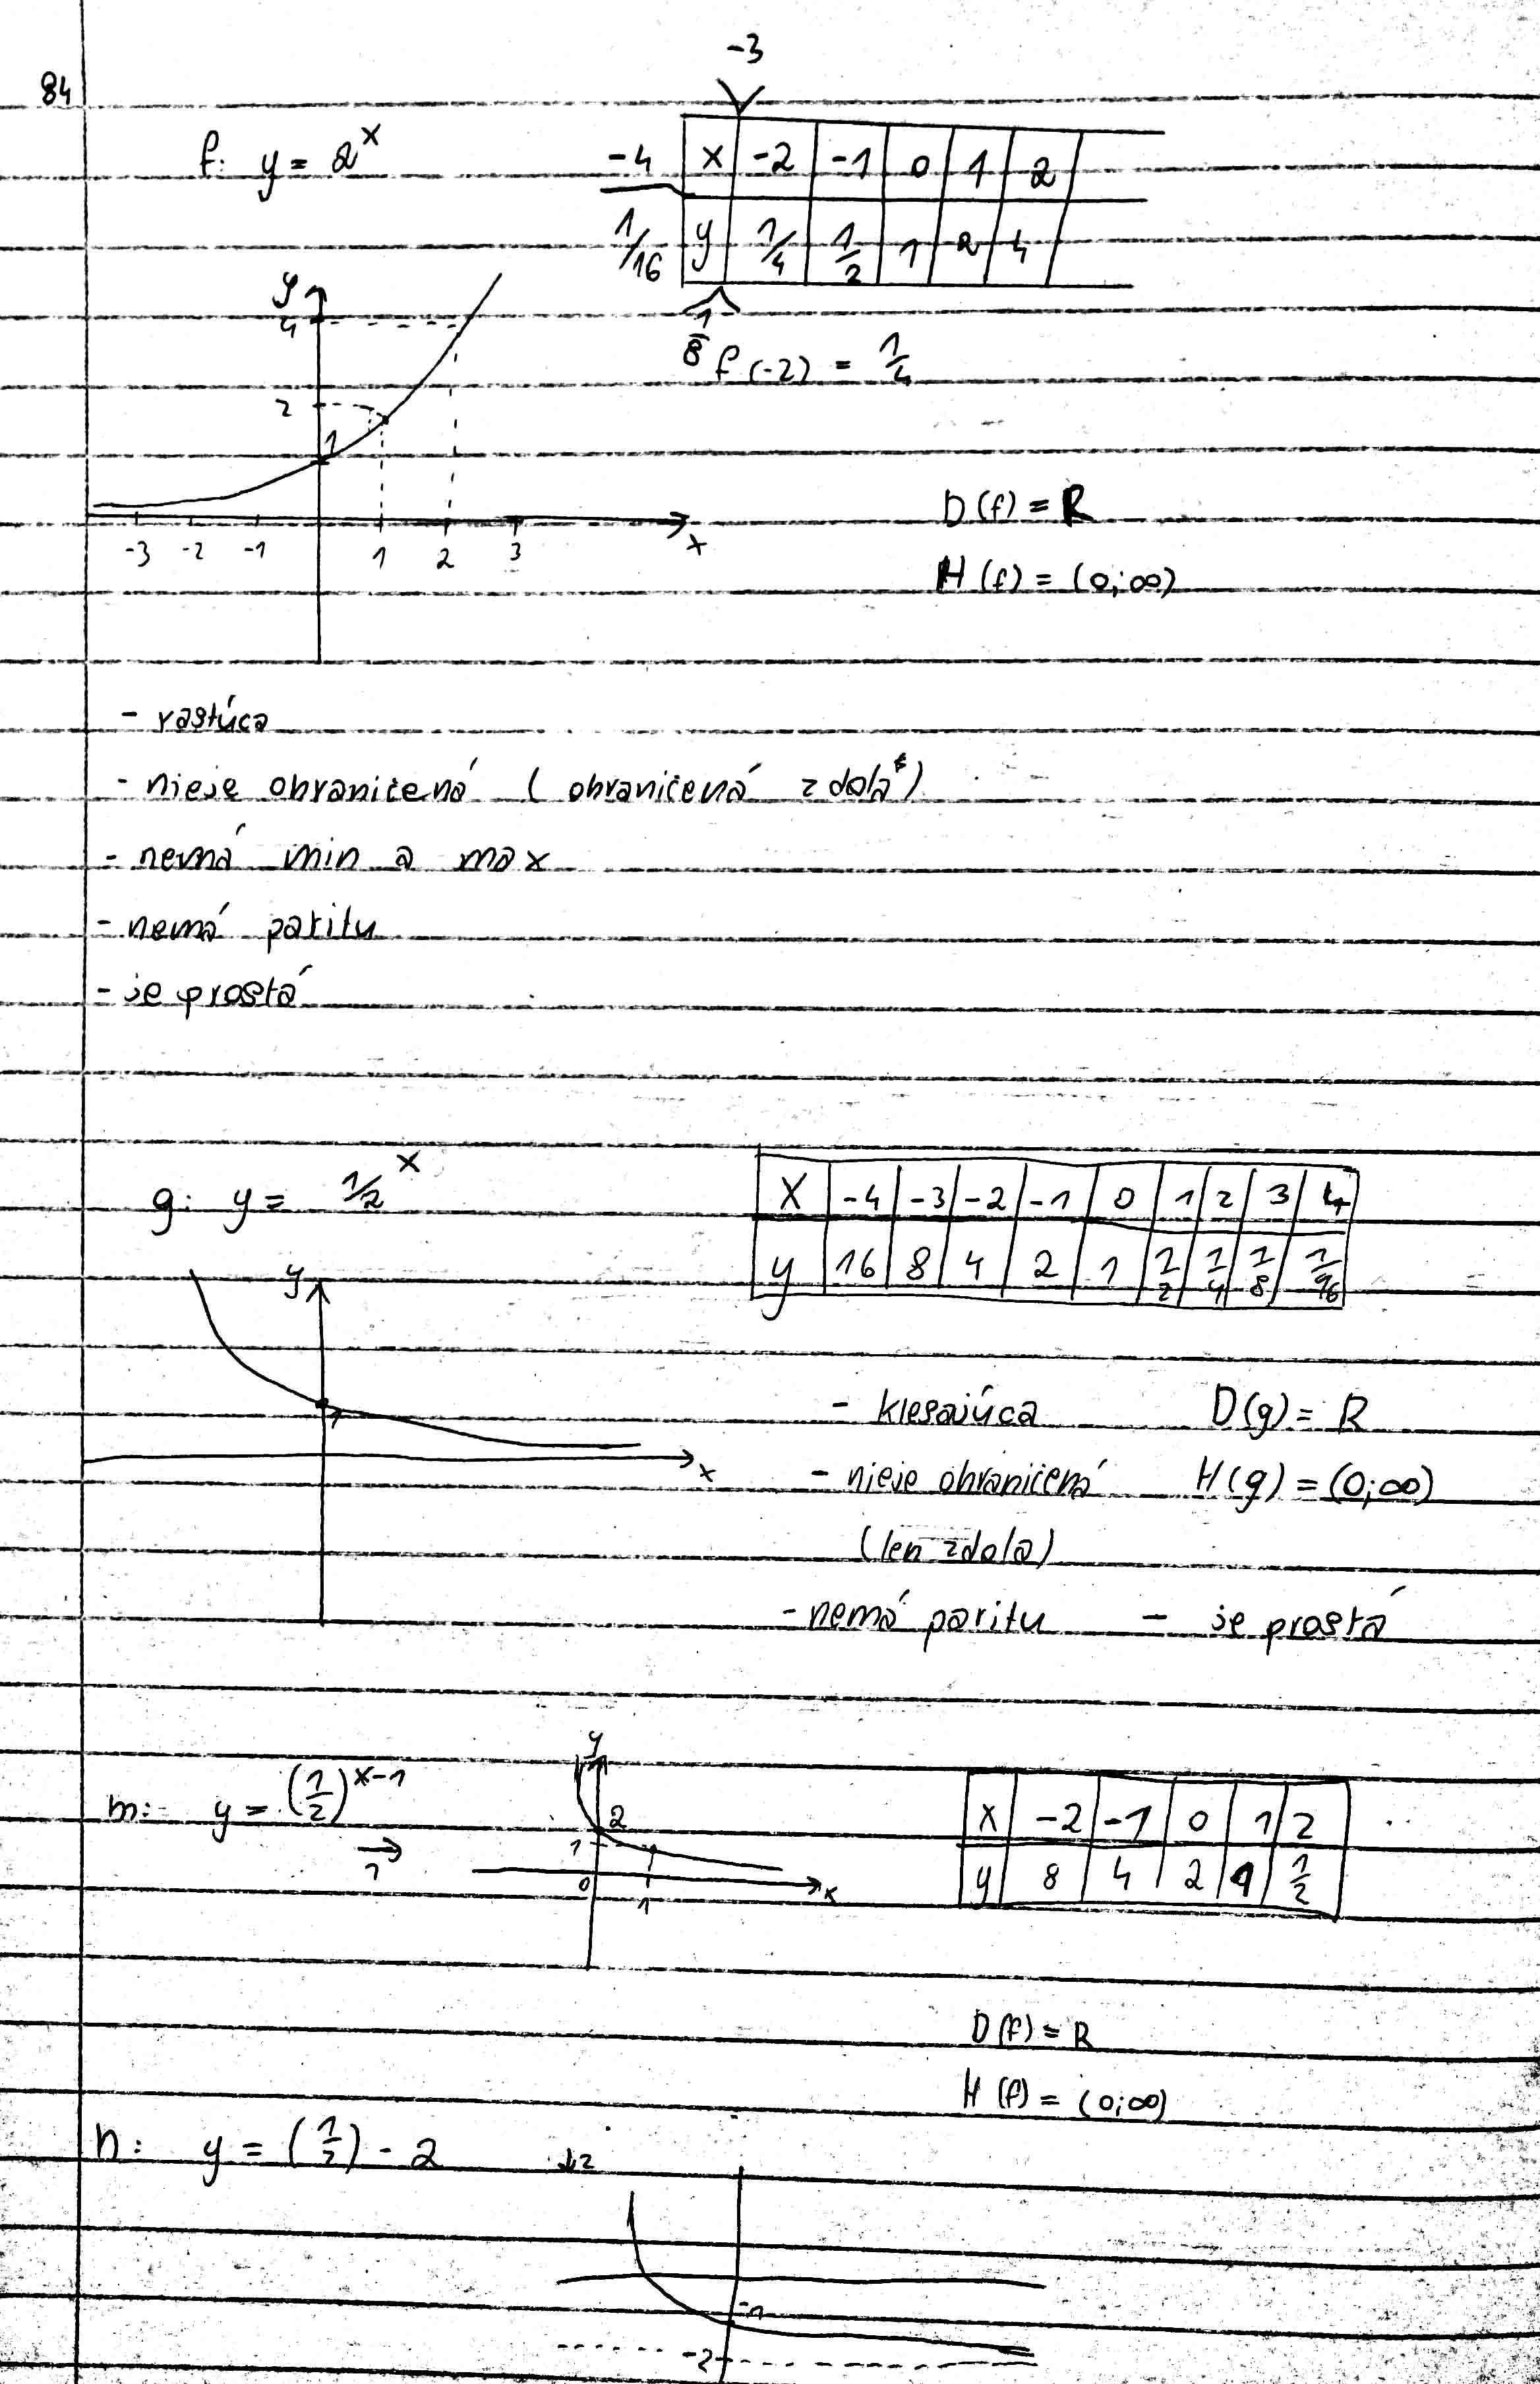 84
-3
f: y = 2^x
-4 | x | -2 | -1 | 0 | 1 | 2
1/16 | y | 1/4 | 1/2 | 1 | 2 | 4
1/8
f(-2) = 1/4
y
4
2
1
-3 -2 -1 1 2 3 x
D(f) = R
H(f) = (0;∞)
- rastúca
- nieje ohraničená (ohraničená zdola)
- nemá min a max
- nemá paritu
- je prostá
g: y = 1/2^x
x | -4 | -3 | -2 | -1 | 0 | 1 | 2 | 3 | 4
y | 16 | 8 | 4 | 2 | 1 | 1/2 | 1/4 | 1/8 | 1/16
y
1
x
- klesajúca D(g) = R
- nieje ohraničená H(g) = (0;∞)
(len zdola)
- nemá paritu - je prostá
m: y = (1/2)^x-1
→
1
y
2
1
0 1 x
x | -2 | -1 | 0 | 1 | 2
y | 8 | 4 | 2 | 1 | 1/2
D(f) = R
H(f) = (0;∞)
n: y = (1/2) - 2 ↓2
-1
-2